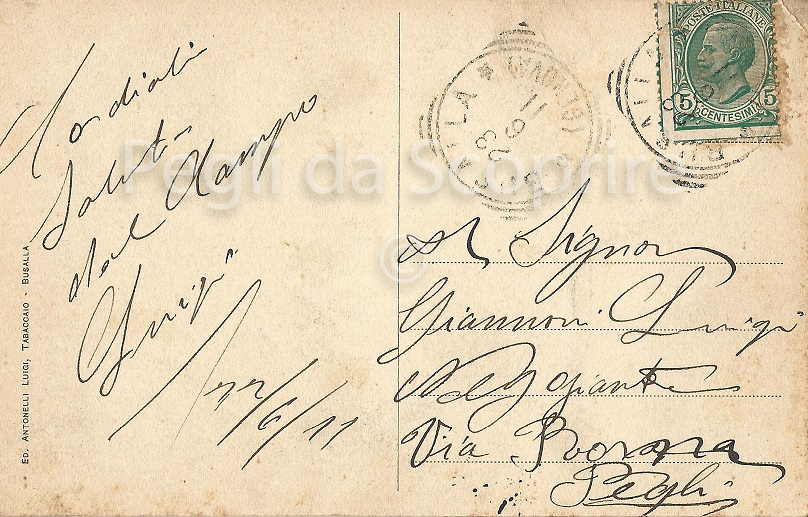 Cordiali
Saluti
dal Campo
Luigi
22/6/11
ED. ANTONELLI LUIGI, TABACCAIO - BUSALLA
Pegli da Scoprire
©
BUSALLA * (GENOVA)
11
6
23
POSTE ITALIANE
5 CENTESIMI 5
BUSALLA
Al Signor
Giannoni Luigi
Negoziante
Via Roma
Pegli